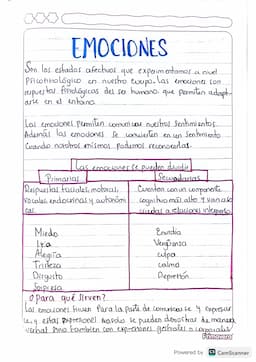 EMOCIONES
Son los estados afectivos que experimentamos a nivel
en nuestro cuerpo. Las emociones son
respuestas fisiológicas del ser humano que permiten adapt-
arse en el entorno.
Las emociones permiten comunicar nuestros sentimientos.
Además las emociones se convierten en un sentimiento
cuando nosotros mismos podemos reconocerlas.
Las emociones se pueden dividir
Primarias Secundarias
Respuestas faciales, motoras, Cuentan con un componente
vocales, endocrinas y autonómi cognitivo más alto y van aso
cas. ciadas a relaciones interperso
Miedo Envidia
Ira Vergüenza
Alegría culpa
Tristeza calma
Disgusto Depresión
Sorpresa
¿Para qué sirven?
Las emociones sirven Para la parte de comunicarse y expresar
se, y estas no solo se pueden demostrar de manera
verbal sino también con expresiones gestuales o corporales
Primavera
Powered by CS CamScanner